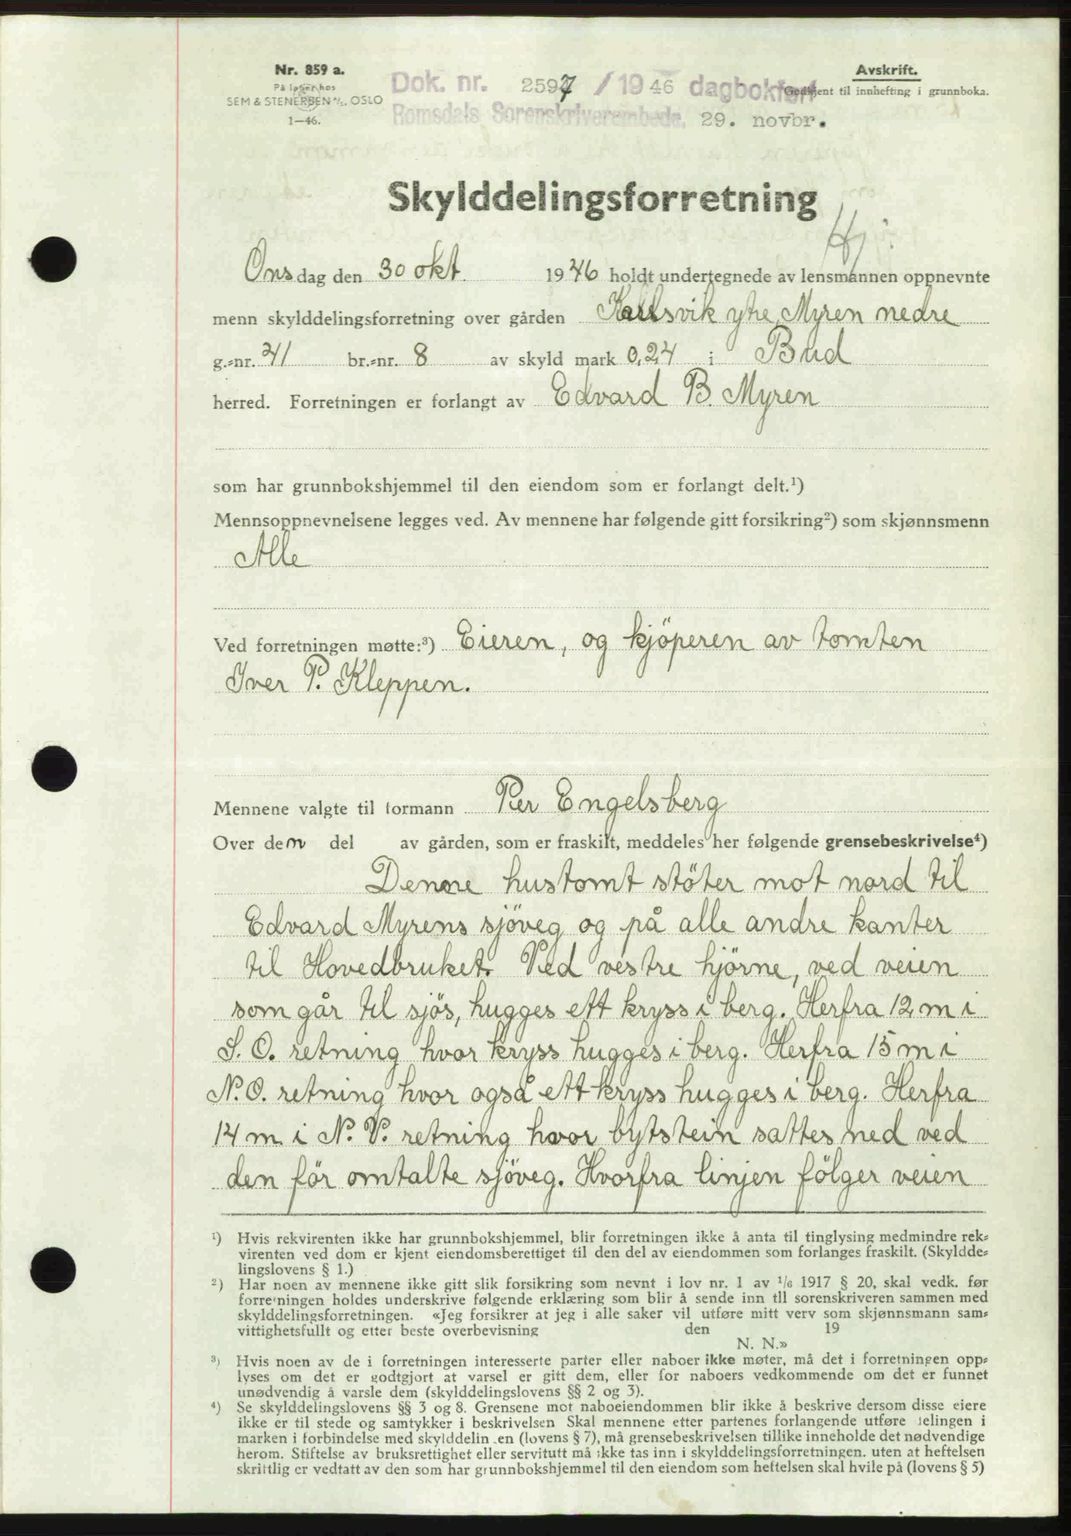 Nr. 859 a.
På lager hos
SEM & STENERSEN A/S, OSLO
1—46.
Dok. nr. 2597 / 1946 dagbokført
Romsdals Sorenskriverembede, 29. novbr.
Avskrift.
Godkjent til innhefting i grunnboka.
Skylddelingsforretning
Onsdag den 30 okt. 1946 holdt undertegnede av lensmannen oppnevnte
menn skylddelingsforretning over gården Karlsvik ytre, Myren nedre
g.-nr. 41 br.-nr. 8 av skyld mark 0,24 i Bud
herred. Forretningen er forlangt av Edvard B. Myren
som har grunnbokshjemmel til den eiendom som er forlangt delt.¹)
Mennsoppnevnelsene legges ved. Av mennene har følgende gitt forsikring²) som skjønnsmenn
Alle
Ved forretningen møtte:³) Eieren, og kjöperen av tomten
Iver P. Kleppen.
Mennene valgte til formann Per Engelsberg
Over den del av gården, som er fraskilt, meddeles her følgende grensebeskrivelse⁴)
Denne hustomt stöter mot nord til
Edvard Myrens sjöveg og på alle andre kanter
til Hovedbruket. Ved vestre hjörne, ved veien
som går til sjös, hugges ett kryss i berg. Herfra 12 m i
S. O. retning hvor kryss hugges i berg. Herfra 15 m i
N. O. retning hvor også ett kryss hugges i berg. Herfra
14 m. i N. V. retning hvor bytstein sattes ned ved
den för omtalte sjöveg. Hvorfra linjen fölger veien
¹) Hvis rekvirenten ikke har grunnbokshjemmel, blir forretningen ikke å anta til tinglysing medmindre rek-
virenten ved dom er kjent eiendomsberettiget til den del av eiendommen som forlanges fraskilt. (Skyldde-
lingslovens § 1.)
²) Har noen av mennene ikke gitt slik forsikring som nevnt i lov nr. 1 av 1/6 1917 § 20, skal vedk. før
forretningen holdes underskrive følgende erklæring som blir å sende inn til sorenskriveren sammen med
skylddelingsforretningen. «Jeg forsikrer at jeg i alle saker vil utføre mitt verv som skjønnsmann sam-
vittighetsfullt og etter beste overbevisning den 19
N. N.»
³) Hvis noen av de i forretningen interesserte parter eller naboer ikke møter, må det i forretningen opp-
lyses om det er godtgjort at varsel er gitt dem, eller for naboers vedkommende om det er funnet
unødvendig å varsle dem (skylddelingslovens §§ 2 og 3).
⁴) Se skylddelingslovens §§ 3 og 8. Grensene mot naboeiendommen blir ikke å beskrive dersom disse eiere
ikke er til stede og samtykker i beskrivelsen Skal mennene etter partenes forlangende utføre delingen i
marken i forbindelse med skylddelingen (lovens § 7), må grensebeskrivelsen tillike inneholde det nødvendige
herom. Stiftelse av bruksrettighet eller servitutt må ikke tas inn i skylddelingsforretningen. uten at heftelsen
skriftlig er vedtatt av den som har grunnbokshjemmel til den eiendom som heftelsen skal hvile på (lovens § 5)